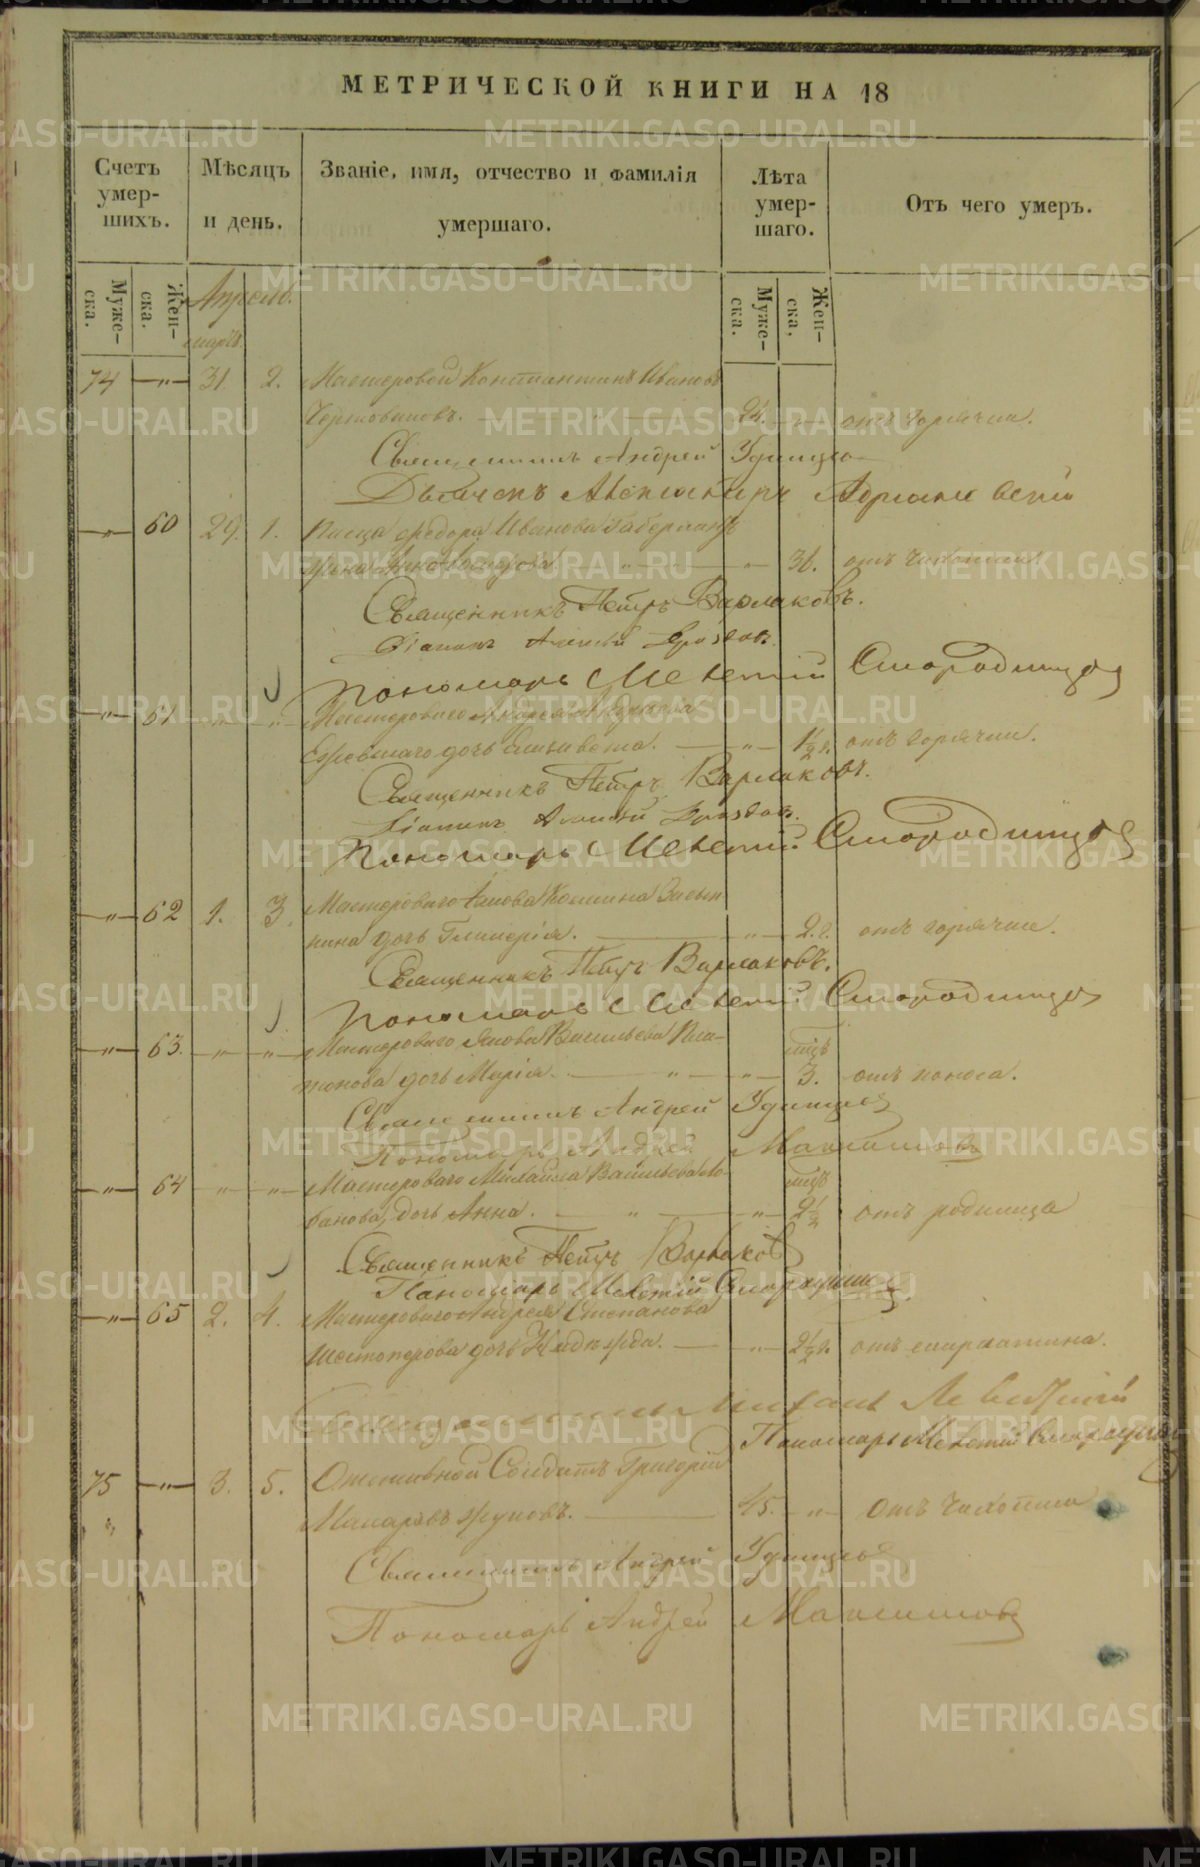 МЕТРИЧЕСКОЙ КНИГИ НА 18
Счетъ умер- шихъ.
Мѣсяцъ и день.
Званіе, имя, отчество и фамилія умершаго.
Лѣта умер- шаго.
Отъ чего умеръ.
Муже- ска.
Жен- ска.
Апрель.
мартъ
Муже- ска.
Жен- ска.
74 — " — 31. 2. Мастеровой Константинъ Ивановъ
24. — " — отъ горячки.
Священникъ Андрей Удинцовъ
Дьяконъ Александръ
— " — 60 29. 1. Писца Федора Иванова
жена Анна — " — " — 31. отъ чахотки
Священникъ Петръ Варлаковъ.
Діаконъ Алексѣй
Пономарь Мелетій Смородинцовъ
— " — 61 " " Мастероваго Андрея
дочь Елизавета. — " — 1½ г. отъ горячки.
Священникъ Петръ Варлаковъ.
Діаконъ Алексѣй
Пономарь Мелетій Смородинцовъ
— " — 62 1. 3. Мастероваго
нина дочь Гликерія. — " — 2. г. отъ горячки.
Священникъ Петръ Варлаковъ.
Пономарь Мелетій Смородинцовъ
— " — 63. — " — " — Мастероваго Якова Васильева Пла-
тонова дочь Марія. — " — " — мцъ 3. отъ поноса.
Священникъ Андрей Удинцовъ
Пономарь Андрей Максимовъ
— " — 64 — " — " — Мастероваго Михаила Васильева Ло-
банова, дочь Анна. — " — " — мцъ 2½ отъ родимца
Священникъ Петръ Варлаковъ
Пономарь Мелетій Смородинцовъ
— " — 65 2. 4. Мастероваго Андрея Степанова
Шестоперова дочь Надежда. — " — 2½ г. отъ скарлатина.
Священникъ Левитскій
Пономарь Мелетій Смородинцовъ
75 — " — 3. 5. Отставной Солдатъ Григорій
Макаровъ Жуковъ. — 45. — " — отъ чахотки
Священникъ Андрей Удинцовъ
Пономарь Андрей Максимовъ
METRIKI.GASO-URAL.RU